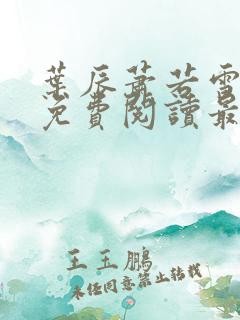 葉辰蕭若雪
免費閱讀最
王玉鵬
未經同意禁止轉載